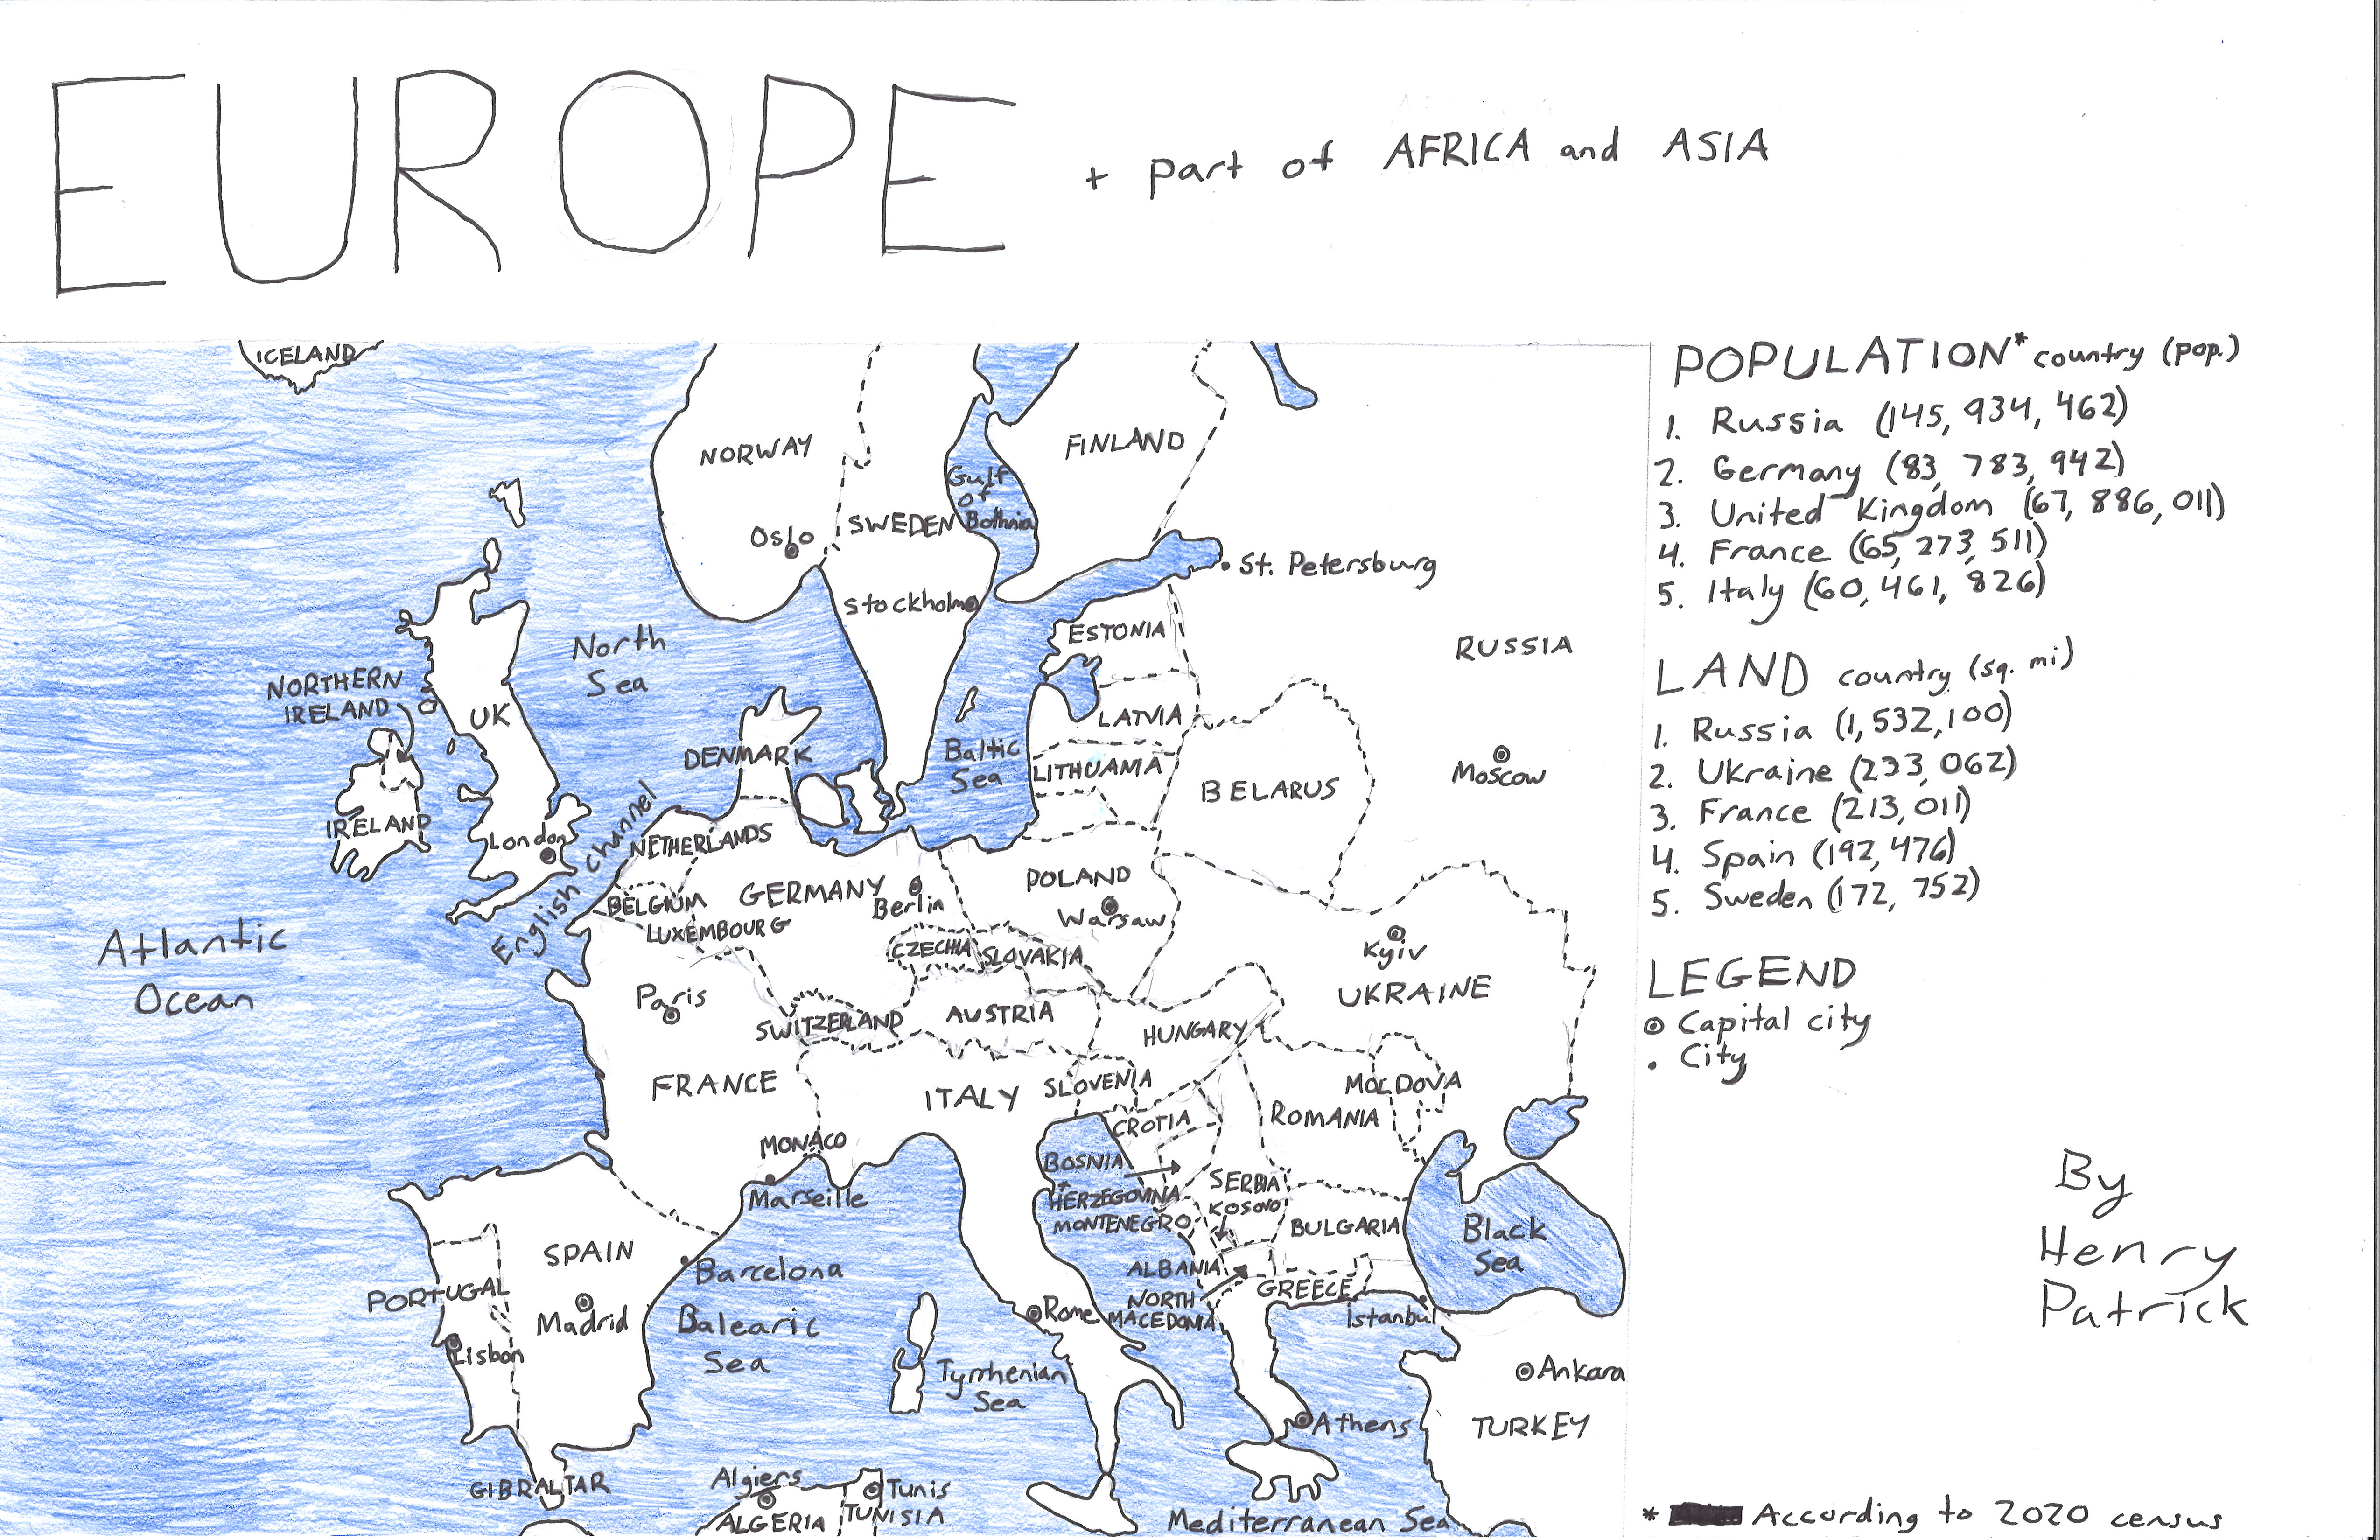 EUROPE + part of AFRICA and ASIA
ICELAND
NORWAY
FINLAND
Gulf
of
Bothnia
SWEDEN
Oslo
St. Petersburg
Stockholm
ESTONIA
RUSSIA
North
Sea
NORTHERN
IRELAND
UK
LATVIA
DENMARK
Baltic
Sea
LITHUAMA
Moscow
BELARUS
IRELAND
London
English Channel
NETHERLANDS
GERMANY
Berlin
POLAND
Warsaw
BELGIUM
LUXEMBOURG
CZECHIA
SLOVAKIA
Kyiv
UKRAINE
Atlantic
Ocean
Paris
SWITZERLAND
AUSTRIA
HUNGARY
FRANCE
ITALY
SLOVENIA
MOLDOVA
CROTIA
ROMANIA
MONACO
BOSNIA
+
HERZEGOVINA
SERBIA
KOSOVO
MONTENEGRO
Marseille
BULGARIA
Black
Sea
SPAIN
Barcelona
ALBANIA
GREECE
PORTUGAL
Madrid
NORTH
MACEDONIA
Rome
Istanbul
Balearic
Sea
Lisbon
Tyrrhenian
Sea
Ankara
Athens
TURKEY
GIBRALTAR
Algiers
Tunis
ALGERIA
TUNISIA
Mediterranean Sea
POPULATION* country (pop.)
1. Russia (145,934,462)
2. Germany (83,783,942)
3. United Kingdom (67,886,011)
4. France (65,273,511)
5. Italy (60,461,826)
LAND country (sq. mi)
1. Russia (1,532,100)
2. Ukraine (233,062)
3. France (213,011)
4. Spain (192,476)
5. Sweden (172,752)
LEGEND
Capital city
City
By
Henry
Patrick
* According to 2020 census